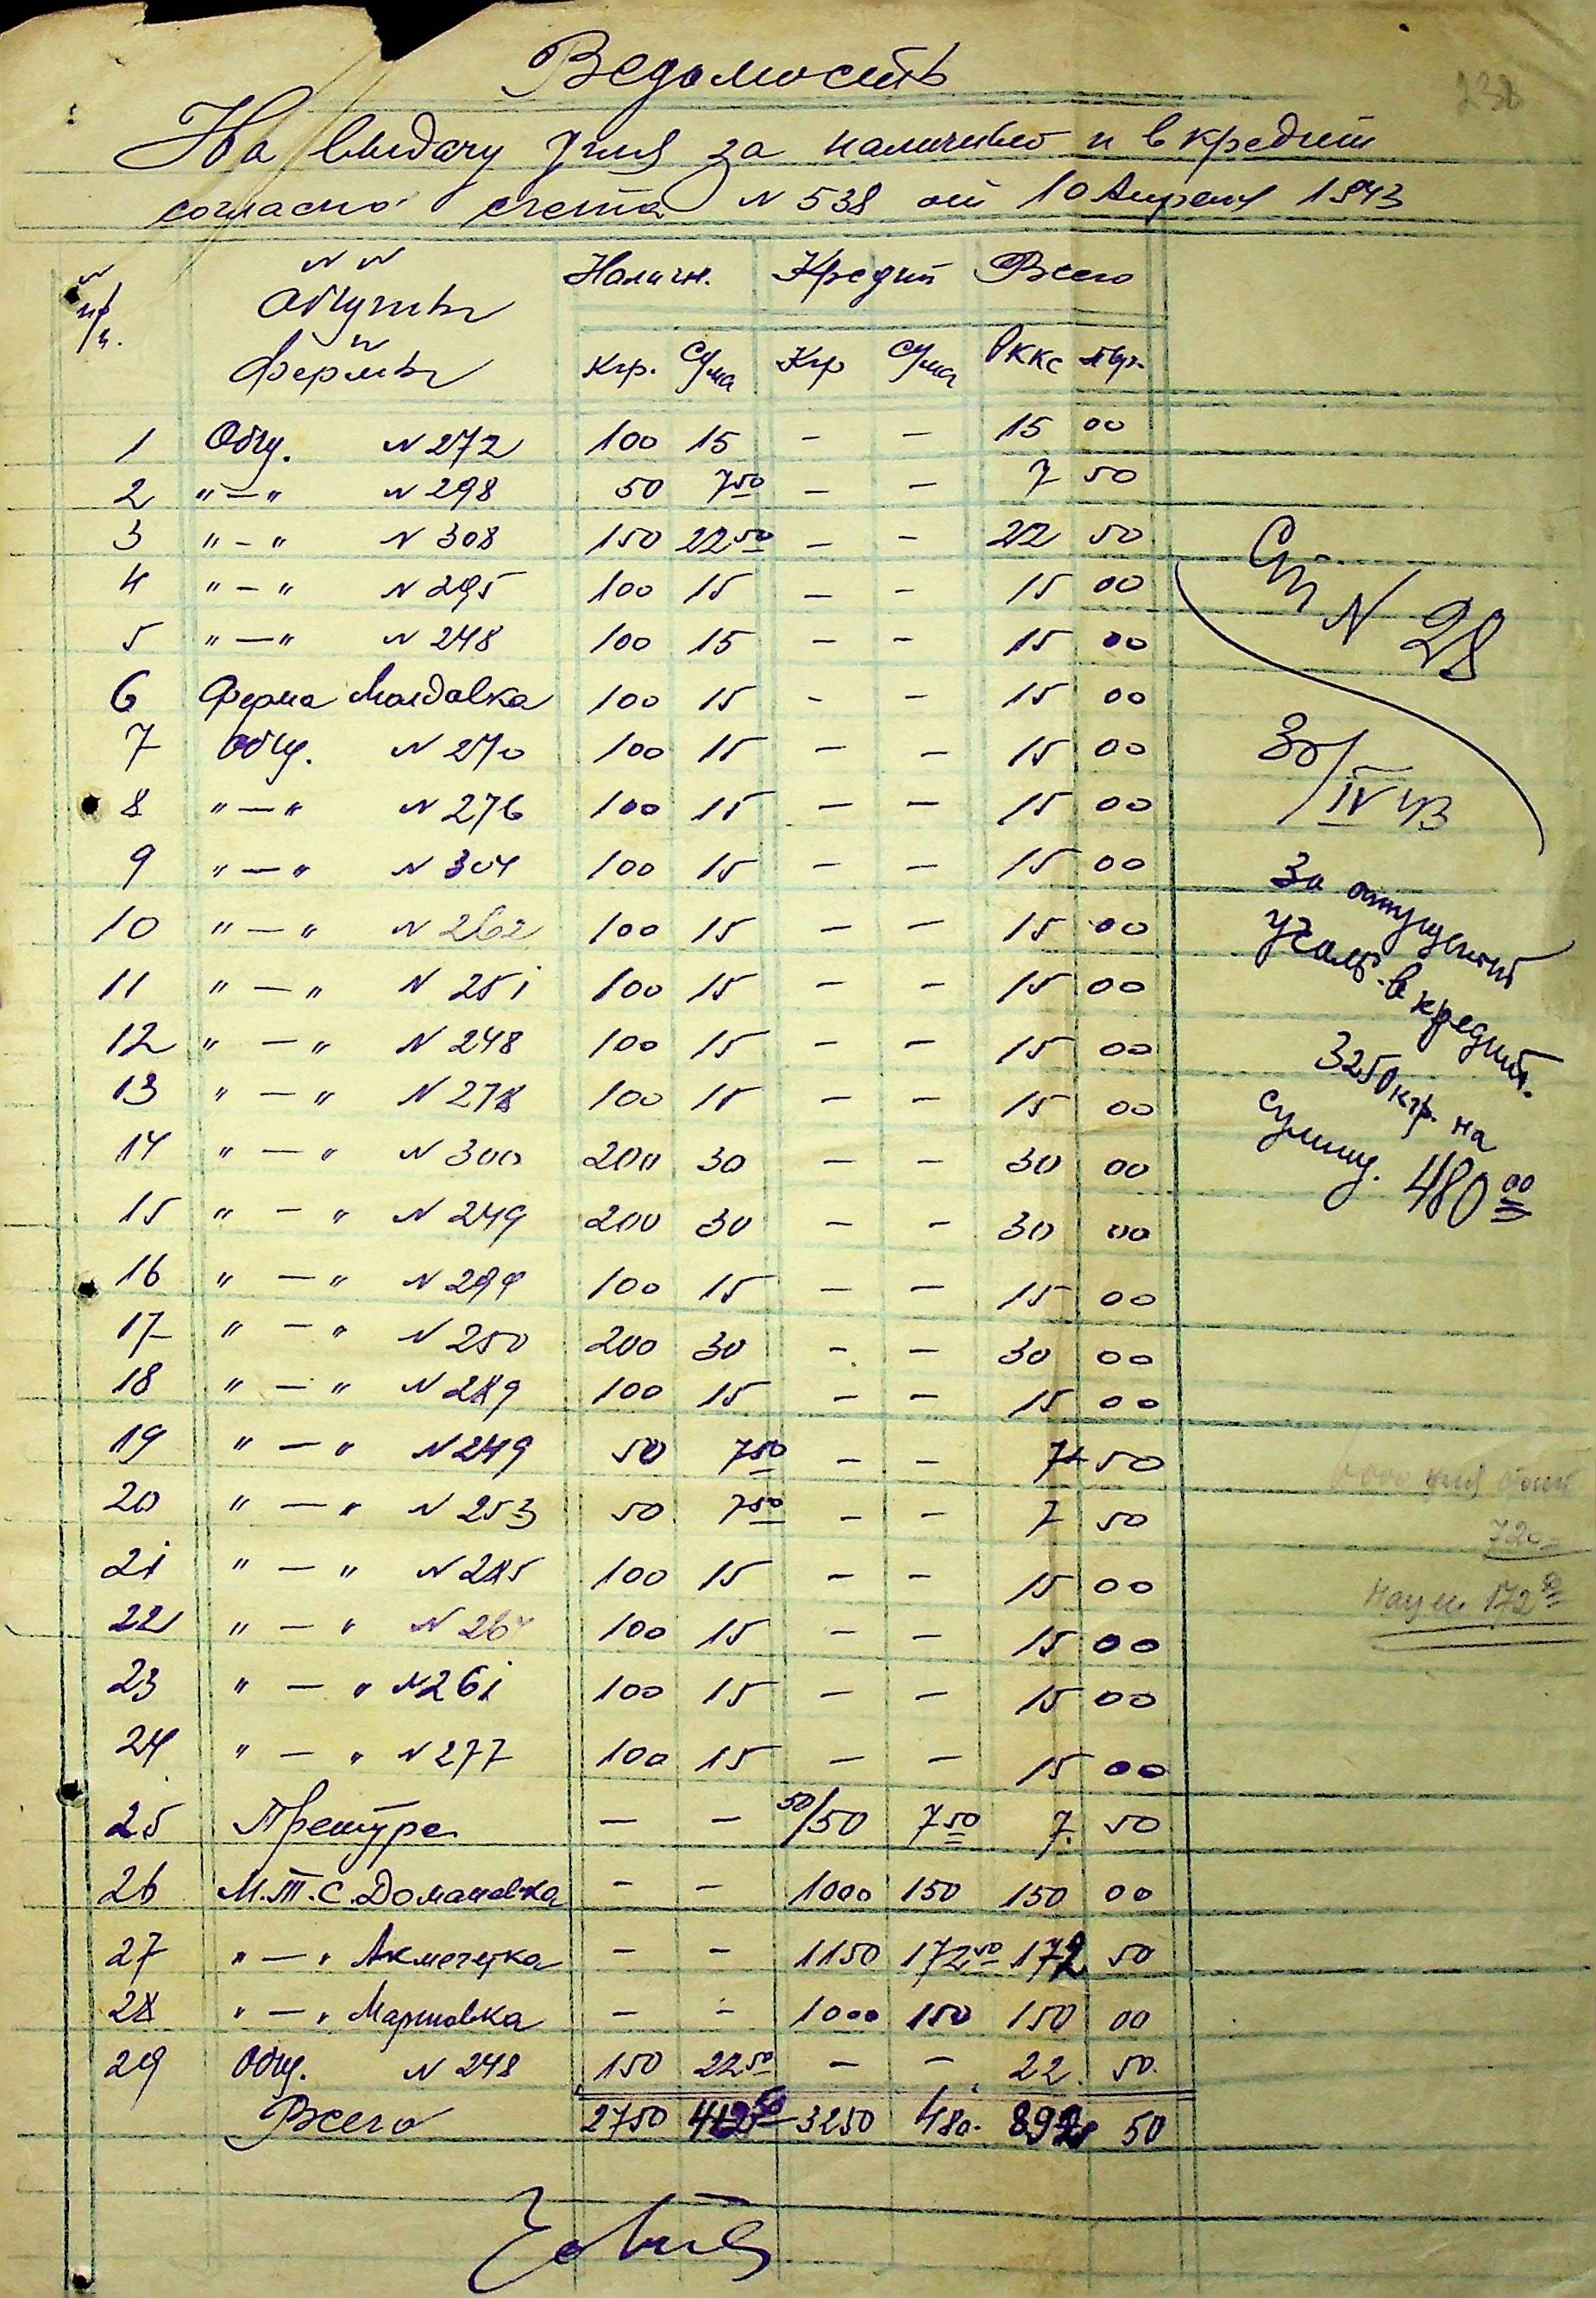 238
Ведомость
На выдачу угля за наличные и в кредит
согласно счета N 538 от 10 Апреля 1943
N п/п. N N Общины и Фермы Наличн. Кредит Всего
кгр. Сумма Кгр Сумма Рккс пф.
1 Общ. N 272 100 15 — — 15 00
2 "—" N 298 50 7 50 — — 7 50
3 "—" N 308 150 22 50 — — 22 50
4 "—" N 295 100 15 — — 15 00
5 "—" N 248 100 15 — — 15 00
6 Ферма Молдавка 100 15 — — 15 00
7 Общ. N 270 100 15 — — 15 00
8 "—" N 276 100 15 — — 15 00
9 "—" N 304 100 15 — — 15 00
10 "—" N 262 100 15 — — 15 00
11 "—" N 251 100 15 — — 15 00
12 "—" N 248 100 15 — — 15 00
13 "—" N 278 100 15 — — 15 00
14 "—" N 300 200 30 — — 30 00
15 "—" N 249 200 30 — — 30 00
16 "—" N 299 100 15 — — 15 00
17 "—" N 250 200 30 — — 30 00
18 "—" N 289 100 15 — — 15 00
19 "—" N 249 50 7 50 — — 7 50
20 "—" N 253 50 7 50 — — 7 50
21 "—" N 285 100 15 — — 15 00
22 "—" N 100 15 — — 15 00
23 "—" N 261 100 15 — — 15 00
24 "—" N 277 100 15 — — 15 00
25 Претуре — — 50/50 7 50 7. 50
26 М.Т.С. Домановка — — 1000 150 150 00
27 "—" Акмечетка — — 1150 172 50 172 50
28 "—" Мариновка — — 1000 150 150 00
29 Общ. N 248 150 22 50 — — 22. 50.
Всего 2750 412 50 3250 480. 892 50
N 28
30/IV 43
За отпущеный
уголь в кредит.
3250 кгр. на
сумму. 480 00
720
172